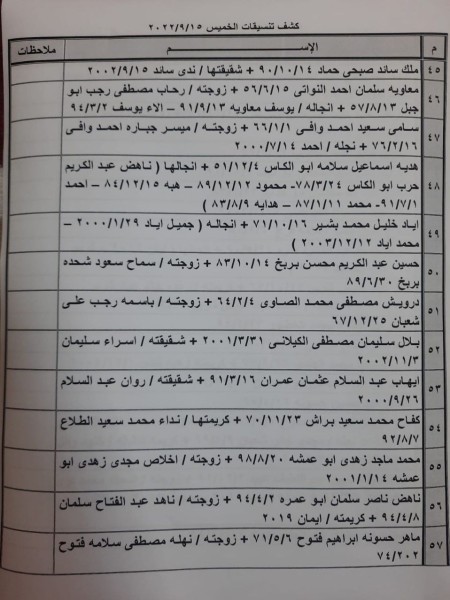 كشف تنسيقات الخميس ٢٠٢٢/٩/١٥
م الإســــم ملاحظات
٤٥ ملك سائد صبحى حماد ٩٠/١٠/١٤ + شقيقتها / ندى سائد ٢٠٠٢/٩/١٥
٤٦ معاويه سلمان احمد النواتى ٥٦/٦/١٥ + زوجته / رحاب مصطفى رجب ابو
جبل ٥٧/٨/١٣ + انجاله / يوسف معاويه ٩١/٩/١٣ – الاء يوسف ٩٤/٣/٢
٤٧ سامى سعيد احمد وافى ٦٦/١/١ + زوجته / ميسر جباره احمد وافى
٧٦/٢/١٦ + نجله / احمد ٢٠٠٠/٧/١٤
٤٨ هديه اسماعيل سلامه ابو الكاس ٥١/١٢/٤ + انجالها ( ناهض عبد الكريم
حرب ابو الكاس ٧٨/٣/٢٤- محمود ٨٩/١٢/١٢ – هبه ٨٤/١٢/١٥ – احمد
٩١/٧/١- محمد ٨٧/١/١١ – هدايه ٨٣/٨/٩ )
٤٩ اياد خليل محمد بشير ٧١/١٠/١٦ + انجاله ( جميل اياد ٢٠٠٠/١/٢٩ –
محمد اياد ٢٠٠٣/١٢/١٢ )
٥٠ حسين عبد الكريم محسن بربخ ٨٣/١٠/١٤ + زوجته / سماح سعود شحده
بربخ ٨٩/٦/٣٠
٥١ درويش مصطفى محمد الصاوى ٦٤/٢/٤ + زوجته / باسمه رجب على
شعبان ٦٧/١٢/٢٥
٥٢ بلال سليمان مصطفى الكيلانى ٢٠٠١/٣/٣١ + شقيقته / اسراء سليمان
٢٠٠٢/١١/٣
٥٣ ايهاب عبد السلام عثمان عمران ٩١/٣/١٦ + شقيقته / روان عبد السلام
٢٠٠٠/٩/٢٦
٥٤ كفاح محمد سعيد براش ٧٠/١١/٢٣ + كريمتها / نداء محمد سعيد الطلاع
٩٢/٨/٧
٥٥ محمد ماجد زهدى ابو عمشه ٩٨/٨/٢٠ + زوجته / اخلاص مجدى زهدى ابو
عمشه ٢٠٠١/١/١٤
٥٦ ناهض ناصر سلمان ابو عمره ٩٤/٤/٢ + زوجته / ناهد عبد الفتاح سلمان
٩٤/٤/٨ + كريمته / ايمان ٢٠١٩
٥٧ ماهر حسونه ابراهيم فتوح ٧١/٥/٦ + زوجته / نهله مصطفى سلامه فتوح
٧٤/٢٠٢